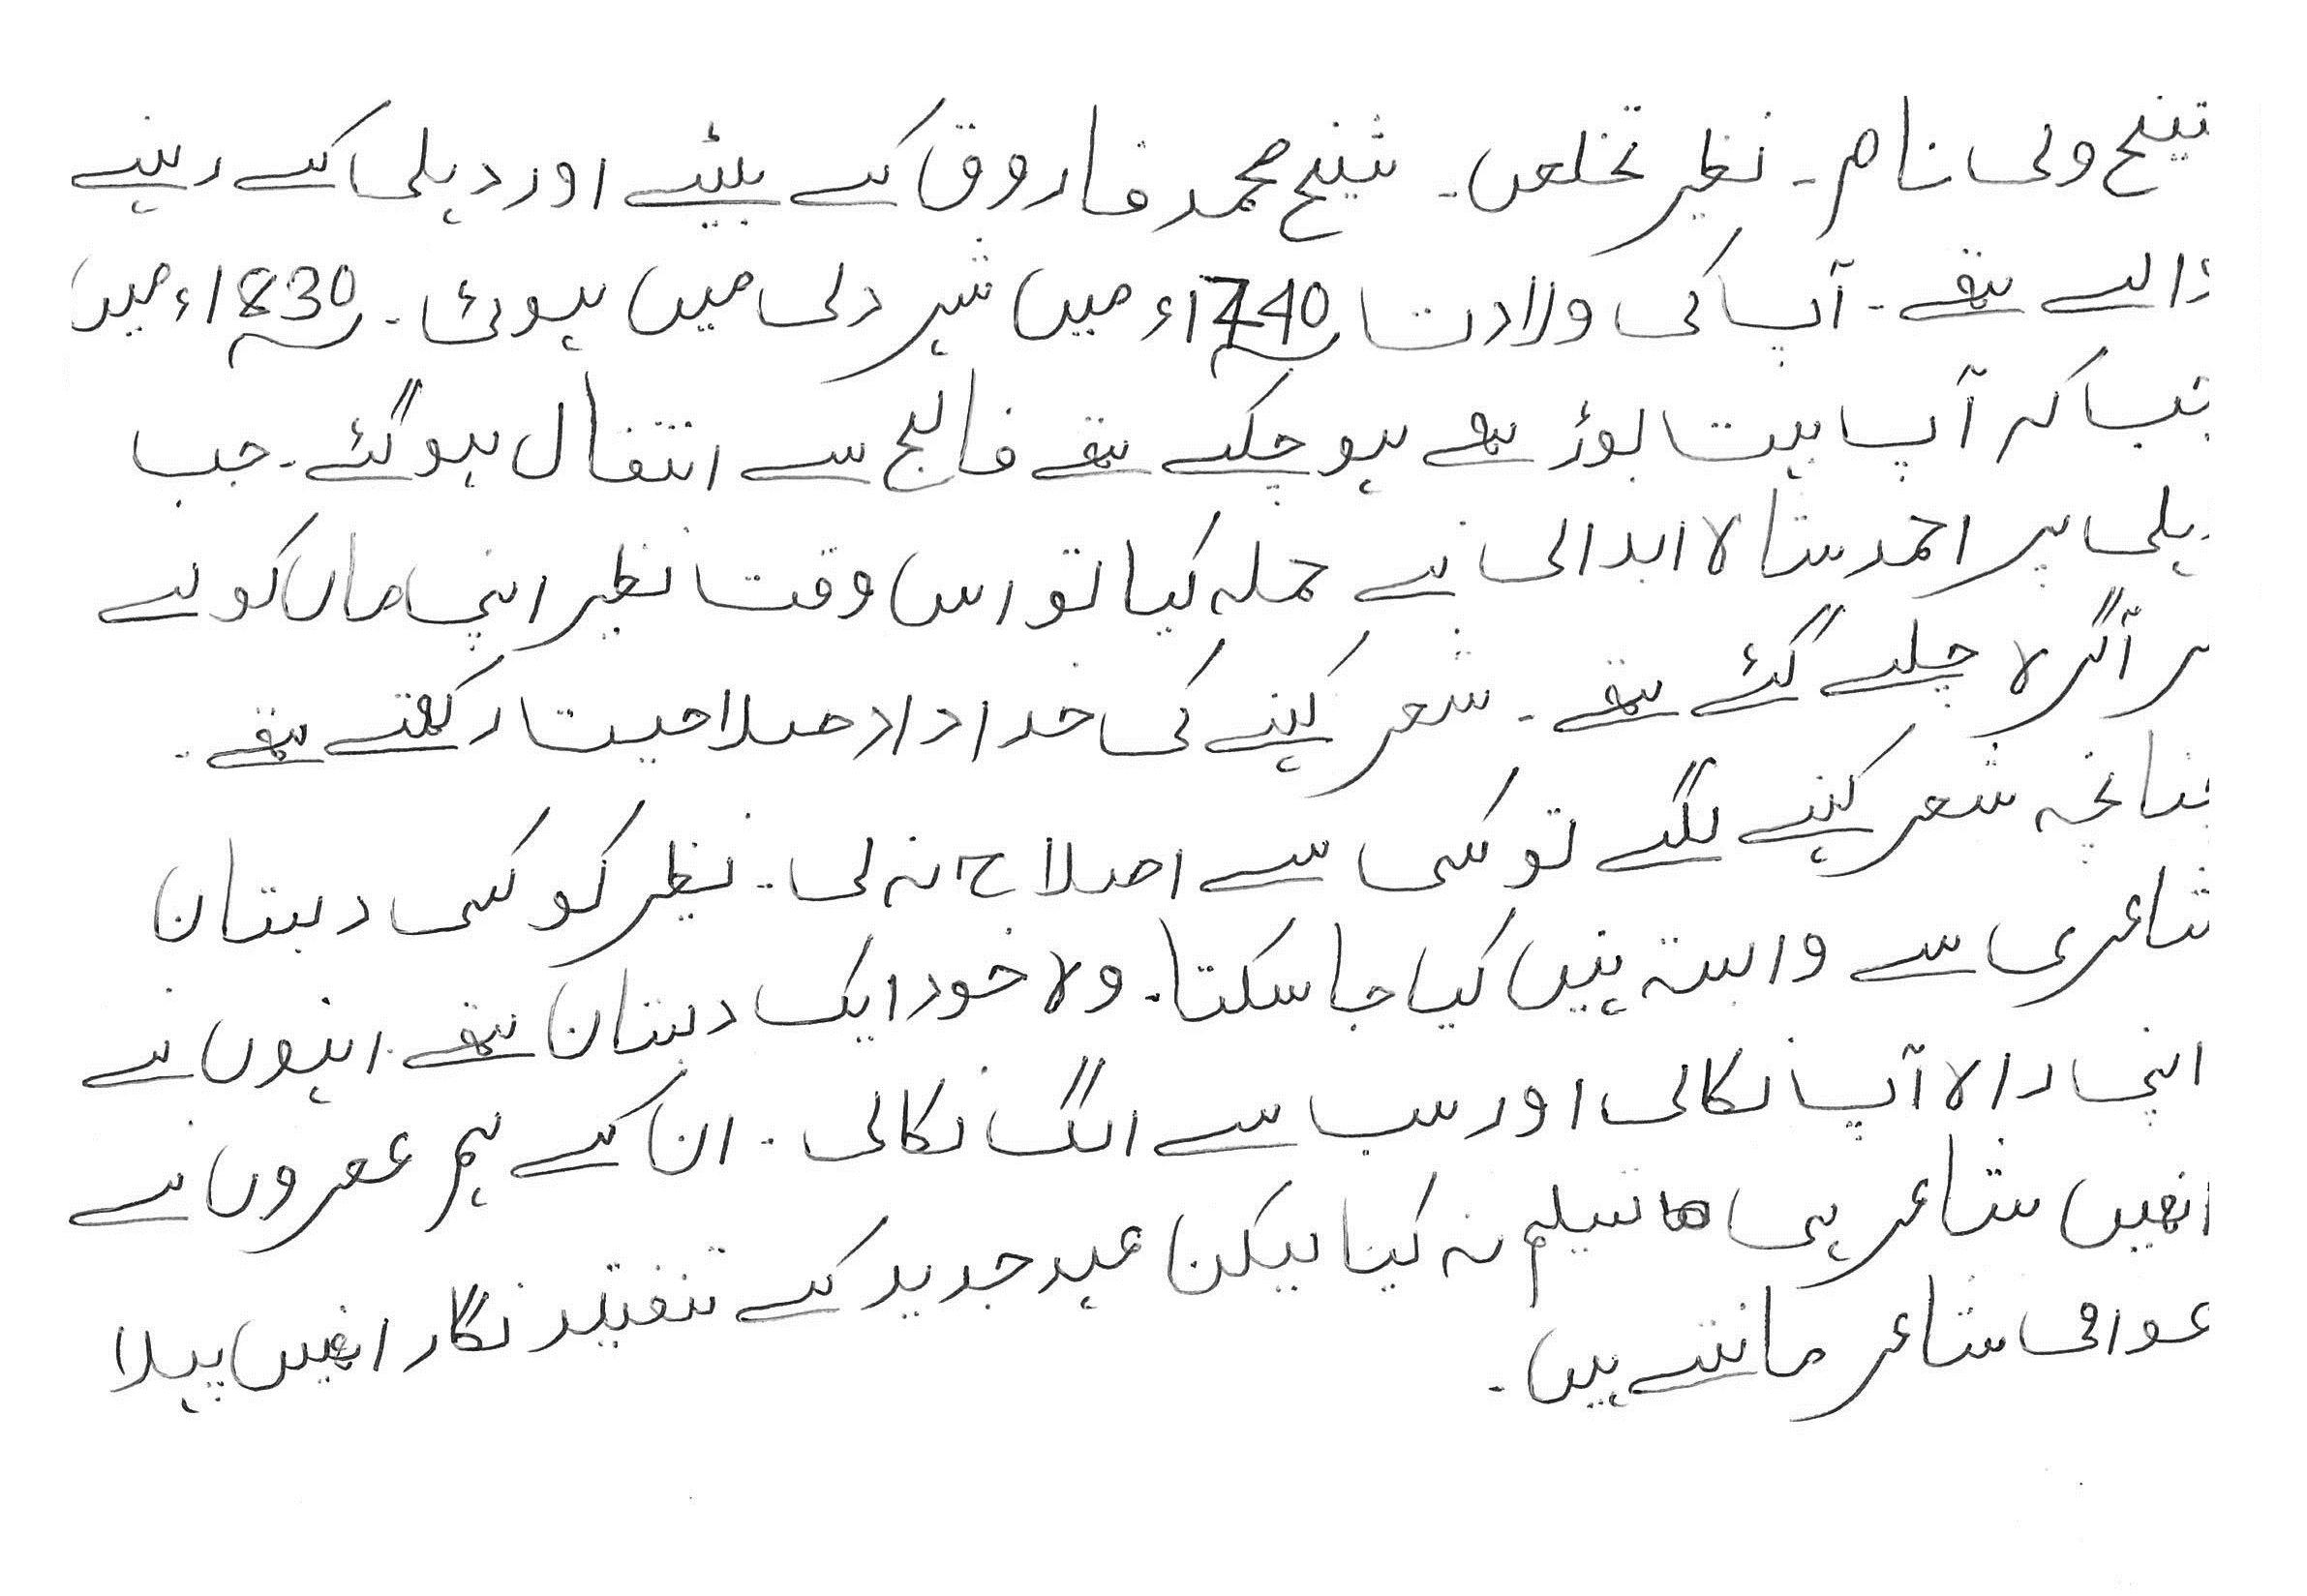 شیخ ولی نام۔ نظیر تخلص۔ شیخ محمد فاروق کے بیٹے اور دہلی کے رہنے
والے تھے۔ آپ کی ولادت 1740ء میں شہر دلی میں ہوئی۔ 1830ء میں
جب کہ آپ بہت بوڑھے ہو چکے تھے فالج سے انتقال ہو گئے۔ جب
دہلی پر احمد شاہ ابدالی نے حملہ کیا تو اس وقت نظیر اپنی ماں کو لے
کر آگرہ چلے گئے تھے۔ شعر کہنے کی خداداد صلاحیت رکھتے تھے۔
چنانچہ شعر کہنے لگے تو کسی سے اصلاح نہ لی۔ نظیر کو کسی دبستان
شاعری سے وابستہ نہیں کیا جا سکتا۔ وہ خود ایک دبستان تھے۔ انہوں نے
اپنی راہ آپ نکالی اور سب سے الگ نکالی۔ ان کے ہم عصروں نے
انھیں شاعر ہی تسلیم نہ کیا لیکن عہد جدید کے تنقید نگار انھیں پہلا
عوامی شاعر مانتے ہیں۔